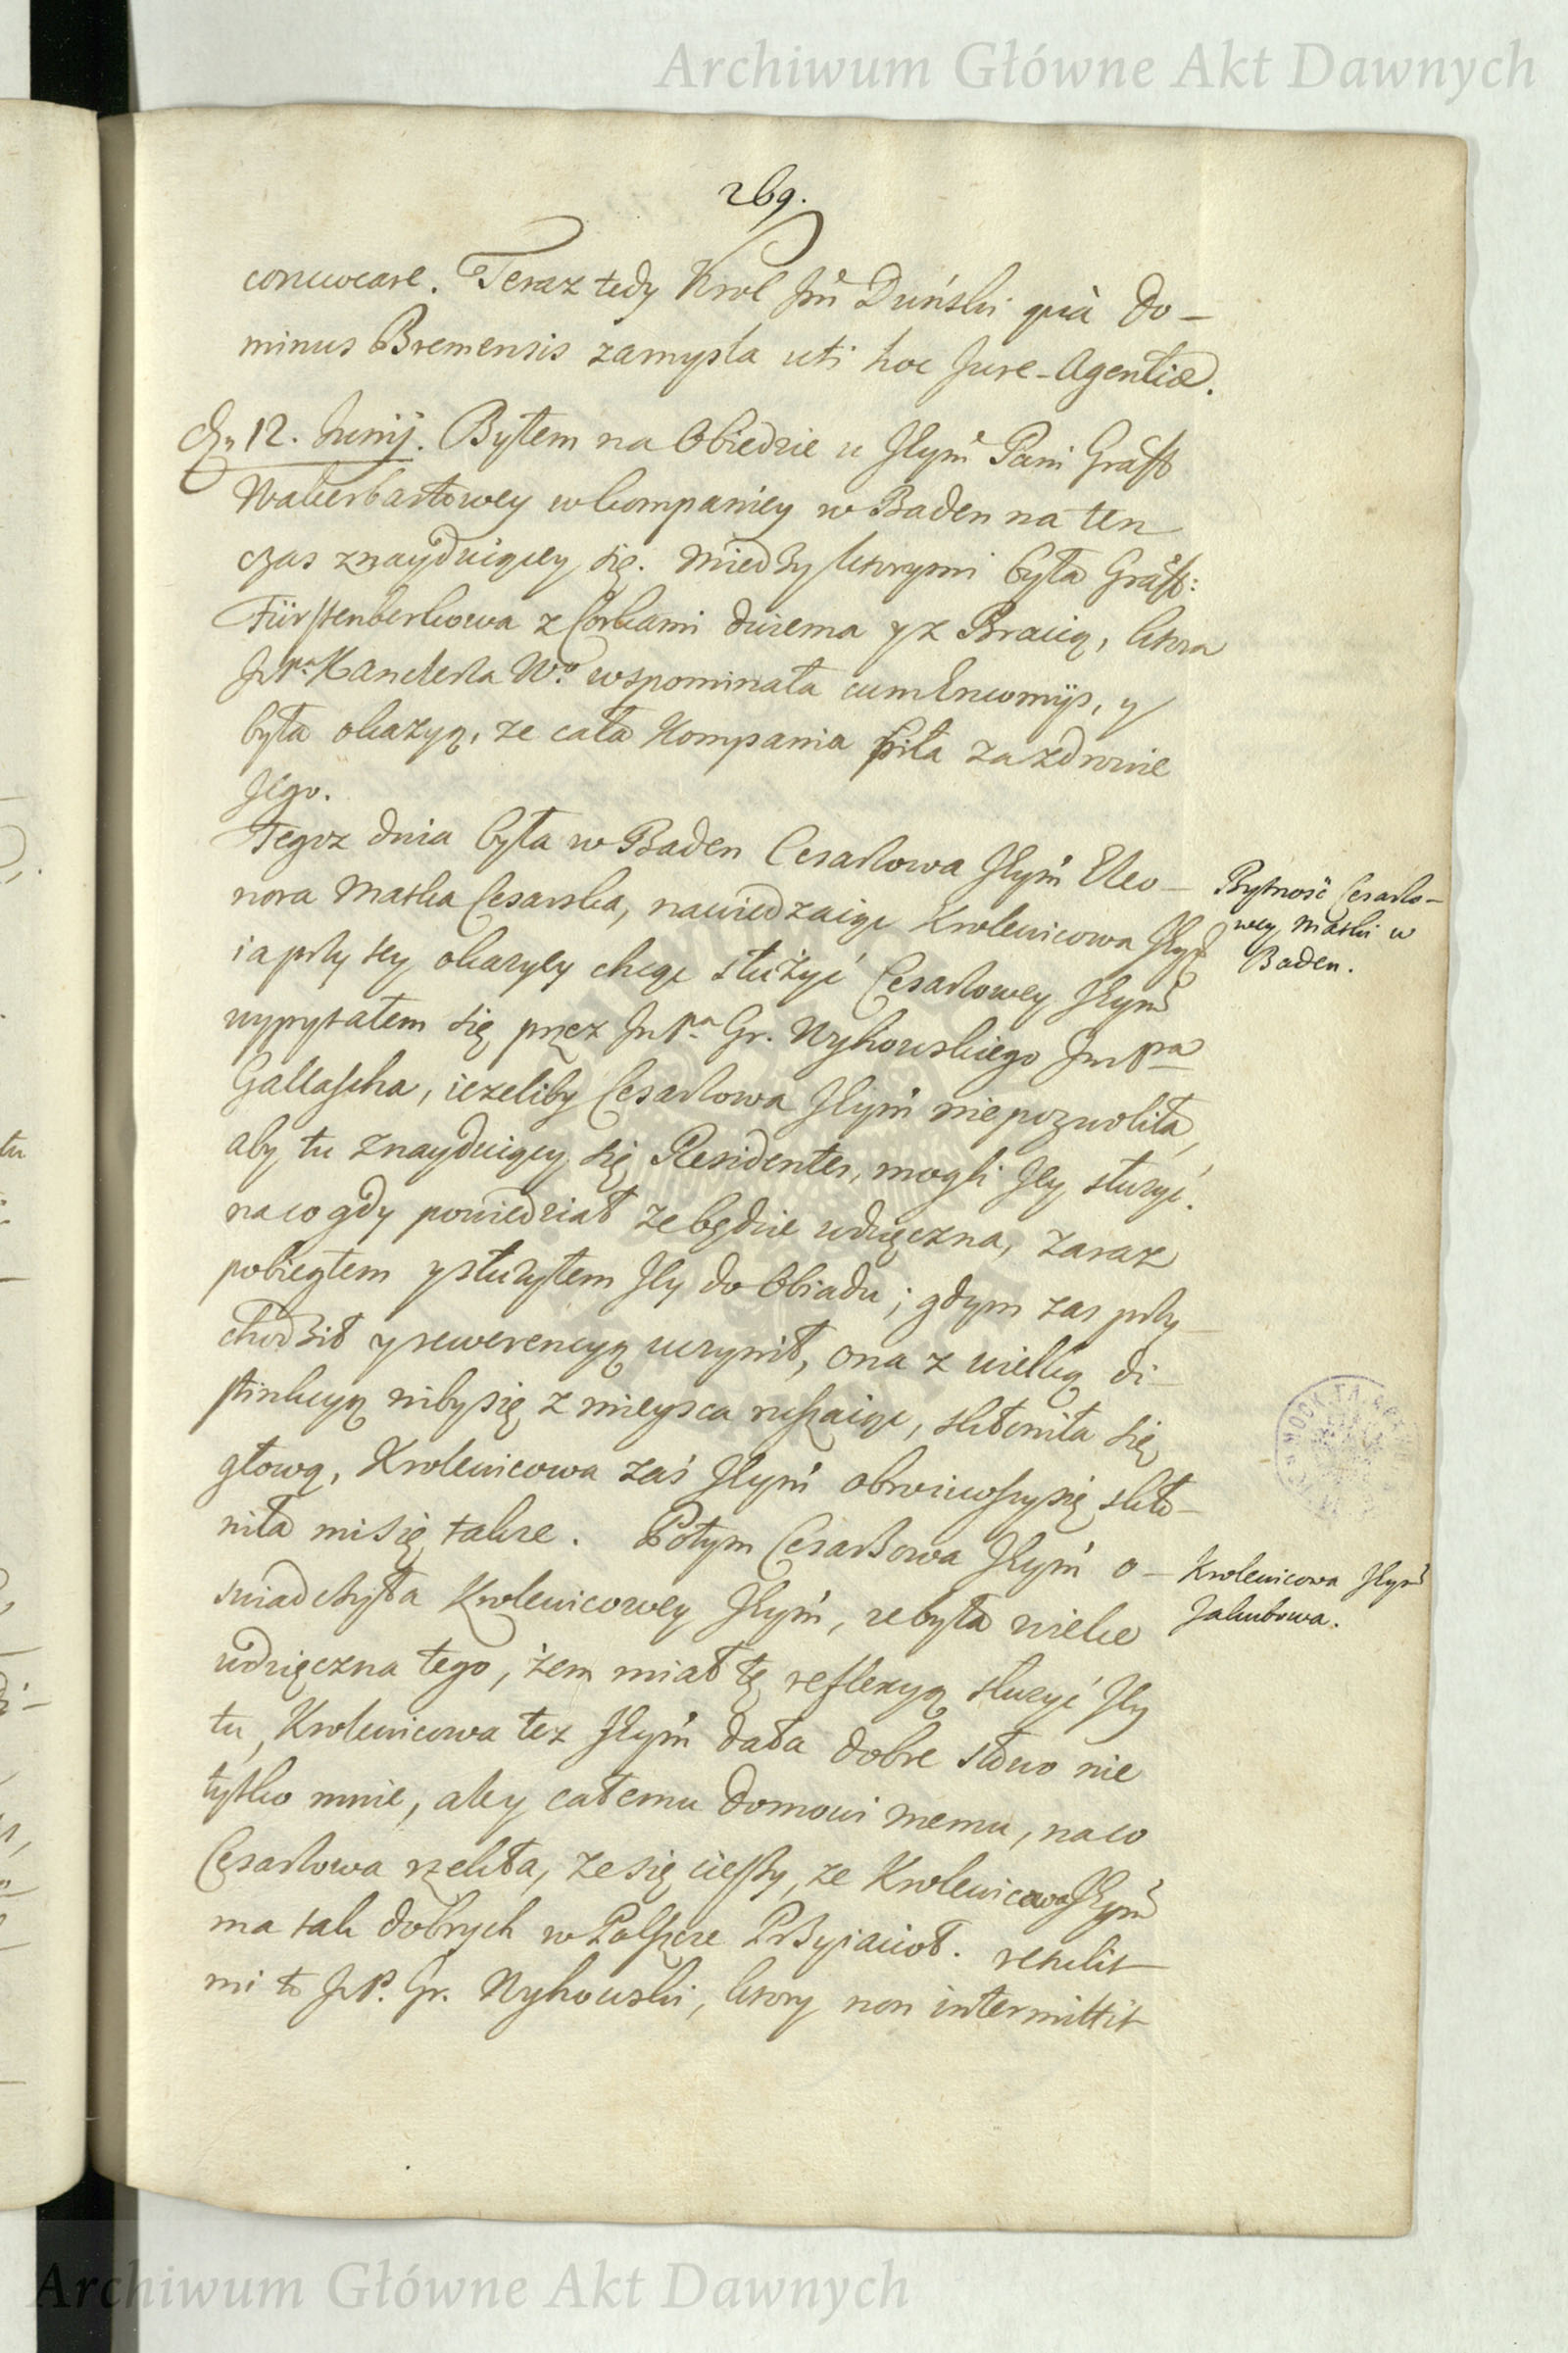 Archiwum Główne Akt Dawnych
269.
convocare. Teraz tedy Krol Jm̃ Duński quà Do-
minus Bremensis zamysla uti hoc Jure-Agentiæ.
12. Junij. Byłem na Obiedzie u Jeÿm̃ Pani Graff
Wakerbartowey w kompaniey w Baden na ten
czas znayduiącey się. Miedzy ktorymi była Graff:
Fürstenberkowa z Corkami dwiema y z Bracią, ktora
JnPa Kanclerza Wo wspominała cum Encomijs, y
była okazyą, ze cała Kompania piła za zdrowie
Jego.
Tegoz dnia była w Baden Cesarzowa Jeÿm̃ Eleo-
nora Matka Cesarska, nawiedzaiąc Krolewicowa Jeÿm̃
ia przy tey okazyey chcąc służyć Cesarzowey Jeÿm̃
wypytałem się przez JnPa Gr. Wyhowskiego JmPa
Gallascha, iezeliby Cesarzowa Jeÿm̃ niepozwoliła,
aby tu znayduiący się Residentes, mogli Jey słuzyć.
na co gdy powiedział ze będzie wdzięczna, zaraz
pobiegłem y słuzyłem Jey do Obiadu; gdym zas przy-
chodził y rewerencyą uczynił, ona z wielką di-
stinkcyą niby się z mieysca ruszaiąc, skłoniła się
głową, Krolewicowa zaś Jeÿm̃ obrociwszy się skło-
niła mi się takze. Potym Cesarzowa Jeÿm̃ o-
swiadczyła Krolewicowey Jeÿm̃, ze była wielce
wdzięczna tego, żem miał tę reflexyą słuzyć Jey
tu, Krolewicowa tez Jeÿm̃ dała dobre słowo nie
tylko mnie, ale y całemu Domowi memu, na co
Cesarzowa rzekła, ze się cieszy, ze Krolewicowa Jeÿm̃
ma tak dobrych w Polszcze Przyiacioł. retulit
mi to JnP. Gr. Wyhowski, ktory non intermittit
Bytność Cesarzo-
wey Matki w
Baden.
Krolewicowa Jeÿm̃
Jakubowa.
Archiwum Główne Akt Dawnych